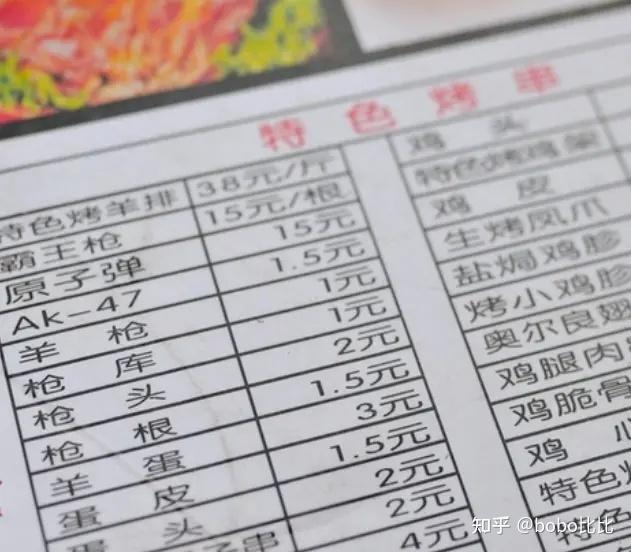 特色烤串
特色烤羊排 38元/斤
霸王枪 15元/根
原子弹 15元
AK-47 1.5元
羊枪 1元
枪库 1元
枪头 2元
枪根 1.5元
羊蛋 3元
蛋皮 1.5元
蛋头 2元
子串 2元
4元
鸡头
特色烤鸡架
鸡皮
生烤凤爪
盐焗鸡胗
烤小鸡胗
奥尔良翅
鸡腿肉
鸡脆骨
鸡心
特色烤
特色
知乎 @bobo比比